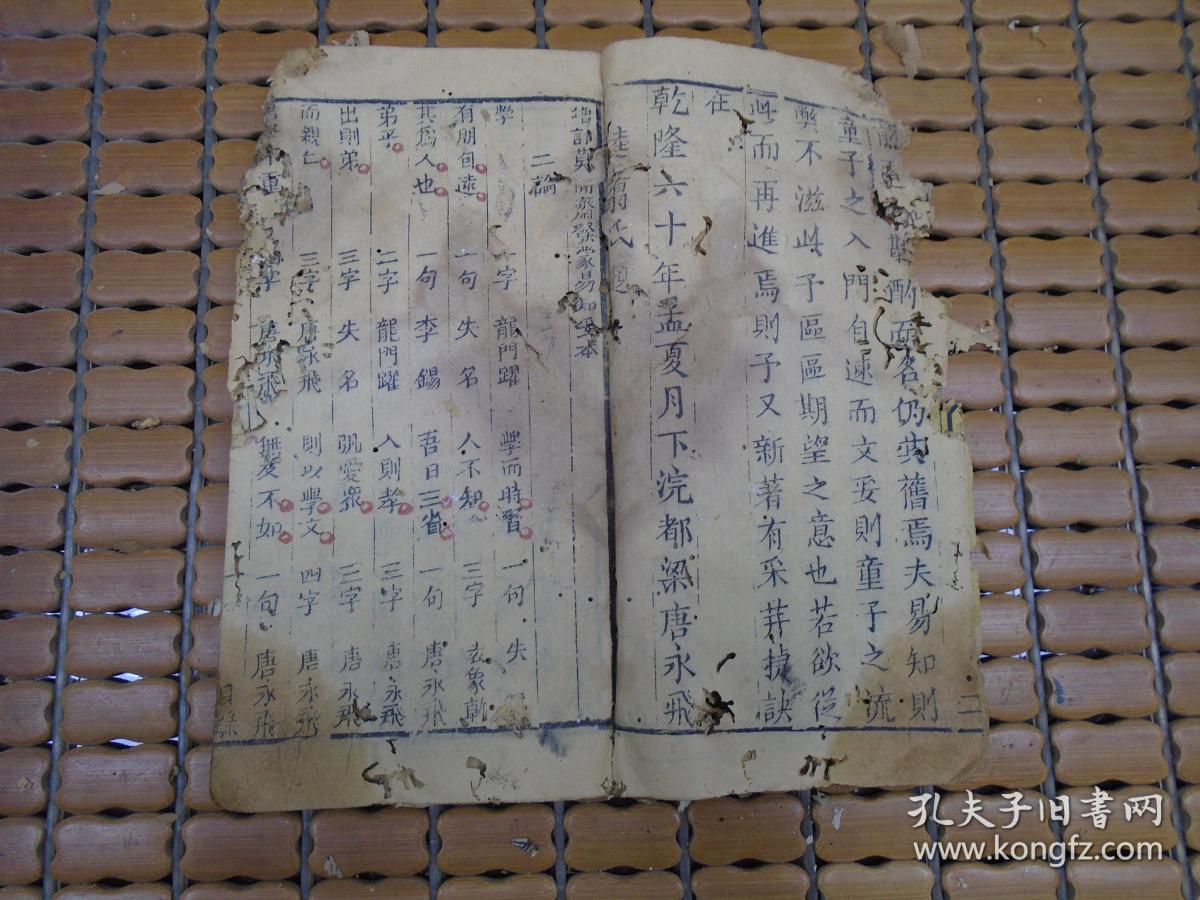 斟酌而名仍其舊焉夫易知則
童子之入門自速而文妥則童子之流
獘不滋此予區區期望之意也若欲從
此而再進焉則予又新著有采葑捷訣
在
乾隆六十年孟夏月下浣都梁唐永飛
題
二
發蒙易知
本
二論
學 一字 龍門躍 學而時習 一句 失
有朋自遠 一句 失名 人不知 三字 袁象乾
其為人也 一句 李錫 吾日三省 一句 唐永飛
弟乎 二字 龍門躍 入則孝 三字 唐永飛
出則弟 三字 失名 汎愛衆 三字 唐永飛
而親仁 三字 唐永飛 則以學文 四字 唐永飛
重 字 唐永飛 無友不如 一句 唐永飛
目錄
孔夫子旧书网
www.kongfz.com